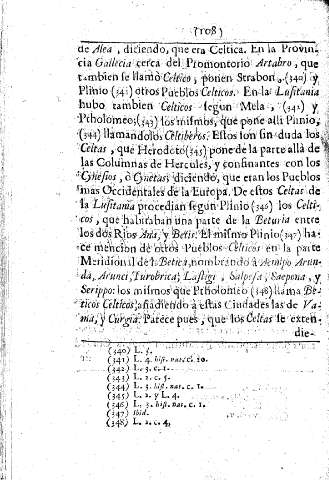 (108)
de Alea, diciendo, que era Celtica. En la Provin-
cia Gallecia cerca del Promontorio Artabro, que
tambien se llamò Celtico, ponen Strabon (340) y
Plinio (341) otros Pueblos Celticos. En la Lusitania
hubo tambien Celticos segun Mela, (342) y
Ptholomeo; (343) los mismos, que pone alli Plinio,
(344) llamandolos Celtiberos. Estos son sin duda los
Celtas, que Herodoto (345) pone de la parte allà de
las Columnas de Hercules, y confinantes con los
Cynesios, ò Cynetas; diciendo, que eran los Pueblos
mas Occidentales de la Europa. De estos Celtas de
la Lusitania procedian segun Plinio (346) los Celti-
cos, que habitaban una parte de la Beturia entre
los dos Rios Ana, y Betis. El mismo Plinio (347) ha-
ce mencion de otros Pueblos Celticos en la parte
Meridional de la Betica, nombrando à Acinipo Arun-
da, Arunci, Turobrica, Lastigi, Salpesa, Saepona, y
Serippo: los mismos que Ptholomeo (348) llama Be-
ticos Celticos, añadiendo à estas Ciudades las de Va-
ma, y Curgia. Parece pues, que los Celtas se exten-
die-
(340) L. 3.
(341) L. 4. hist. nat. c. 20.
(342) L. 3. c. 1.
(343) L. 2. c. 5.
(344) L. 3. hist. nat. c. 1.
(345) L. 2. y L. 4.
(346) L. 3. hist. nat. c. 1.
(347) Ibid.
(348) L. 2. c. 4.